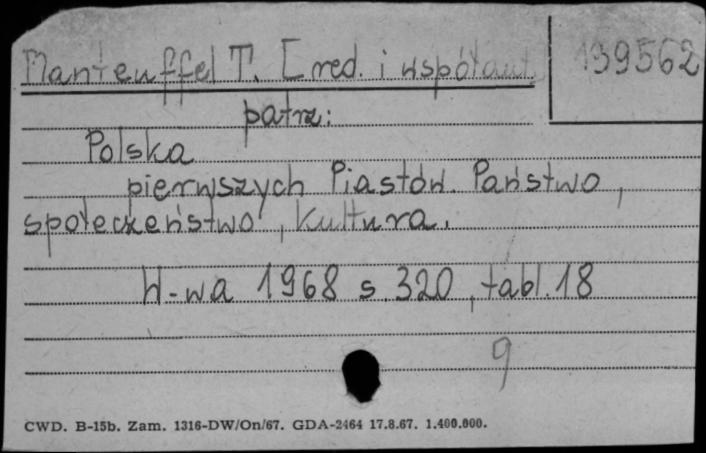 Manteuffel T. [red. i współaut
139562
patrz:
Polska
pierwszych Piastów. Państwo,
społeczeństwo, kultura.
W-wa 1968 s. 320, tabl. 18
9
CWD. B-15b. Zam. 1316-DW/On/67. GDA-2464 17.8.67. 1.400.000.